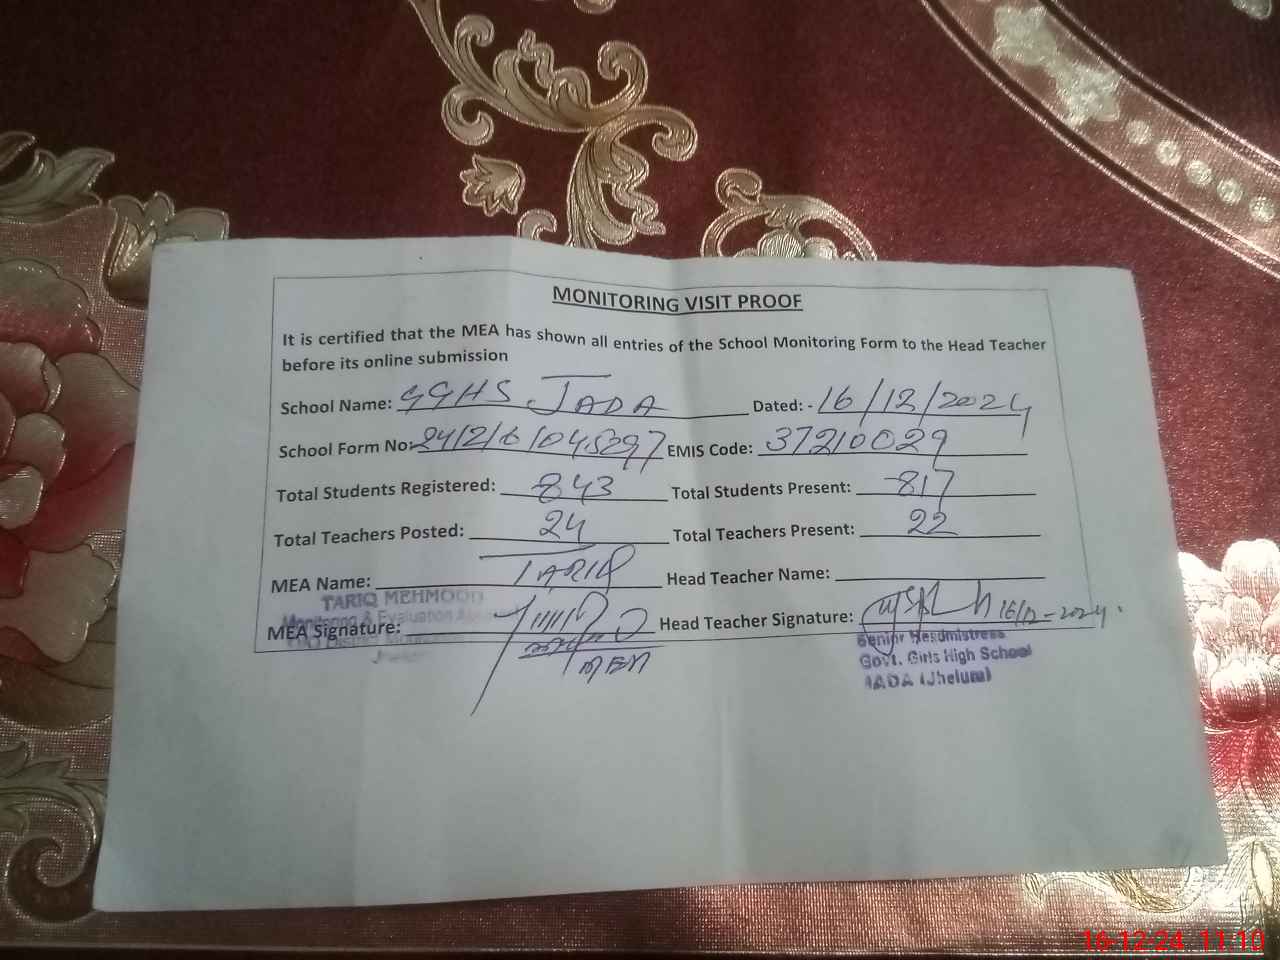 MONITORING VISIT PROOF
It is certified that the MEA has shown all entries of the School Monitoring Form to the Head Teacher
before its online submission
School Name: GGHS JADA Dated: - 16/12/2024
School Form No: 24/2/6/045097 EMIS Code: 37210029
Total Students Registered: 843 Total Students Present: 817
Total Teachers Posted: 24 Total Teachers Present: 22
MEA Name: TARIQ Head Teacher Name:
TARIQ MEHMOOD
Monitoring & Evaluation
MEA Signature: Head Teacher Signature: 16/12-2024
MEA
Senior Headmistress
Govt. Girls High School
JADA (Jhelum)
16-12-24 11:10